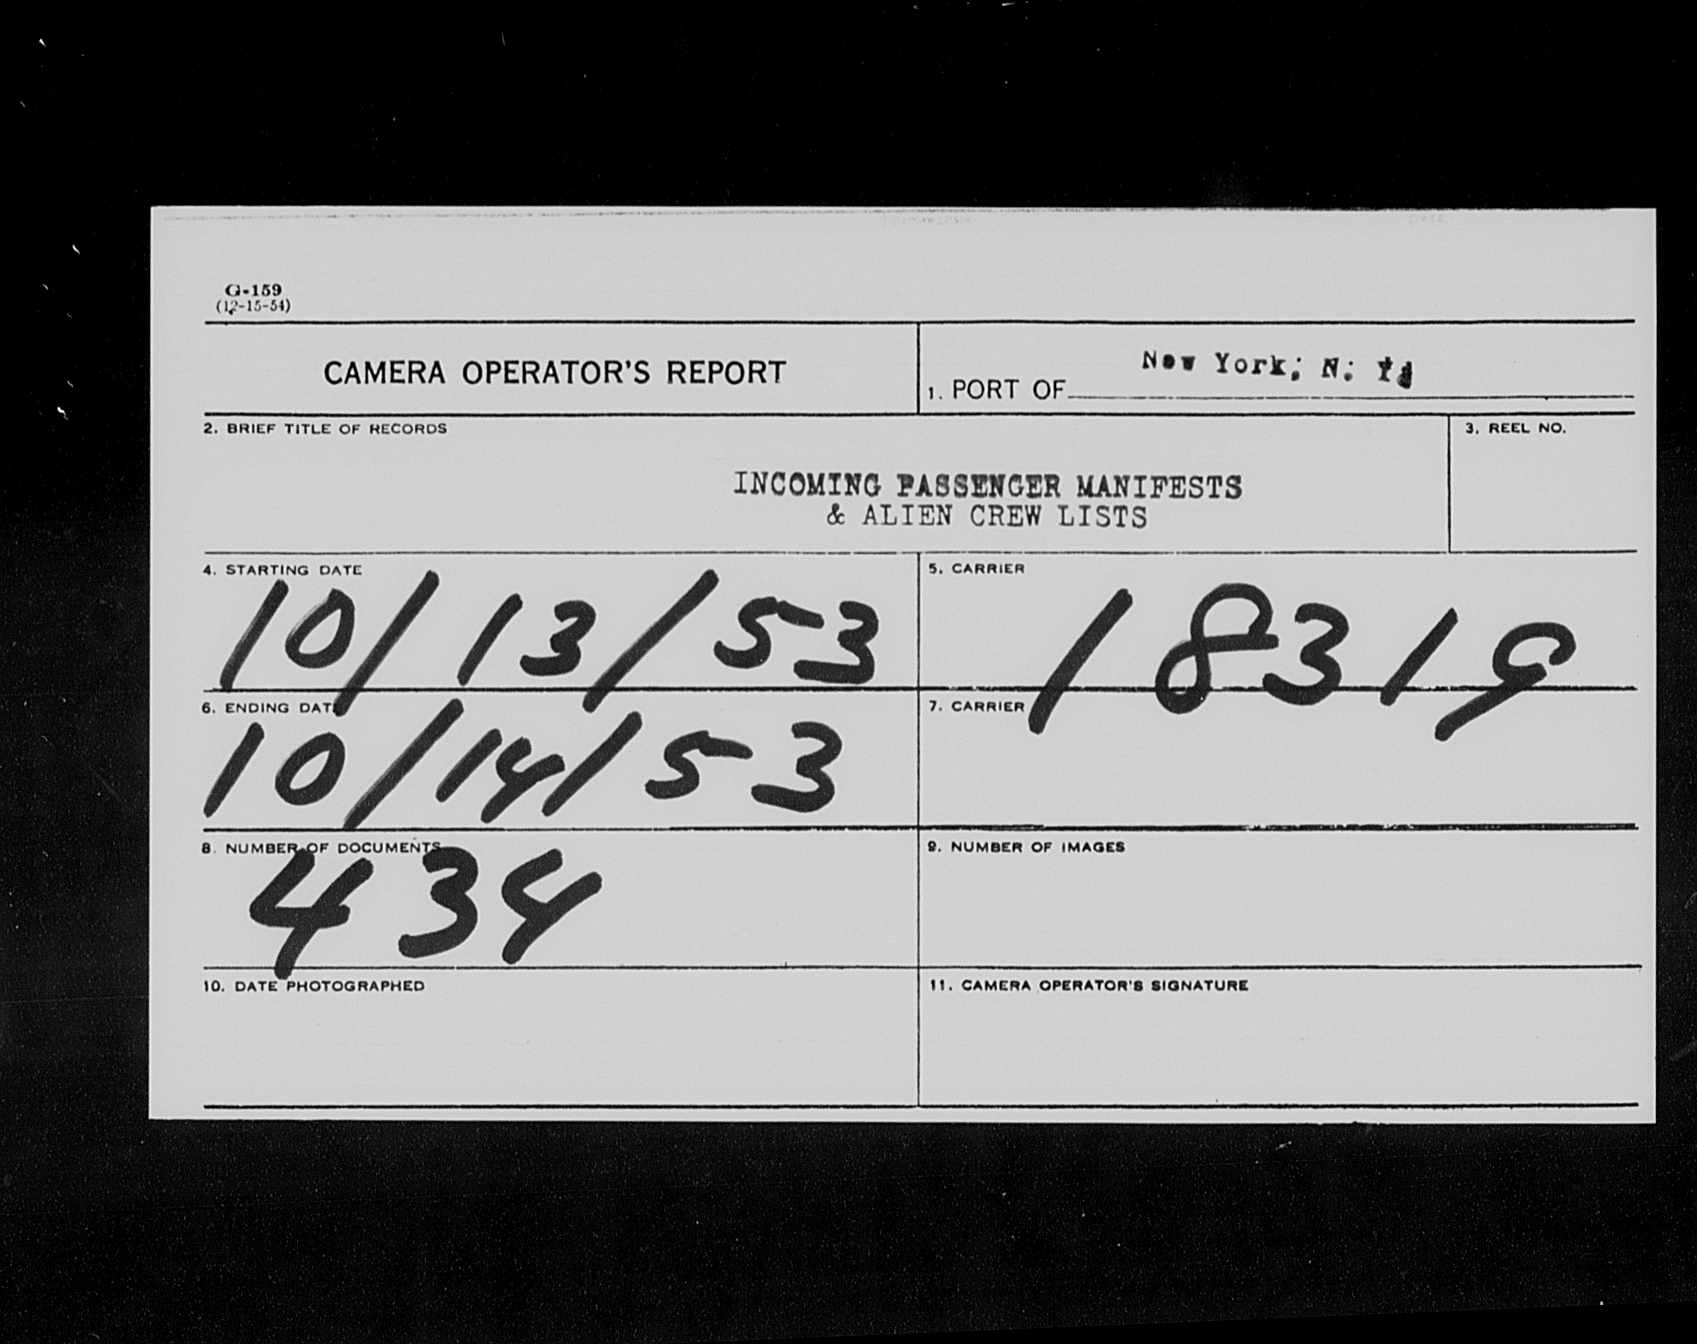 G-159
(12-15-54)
CAMERA OPERATOR'S REPORT
1. PORT OF New York; N: Y.
2. BRIEF TITLE OF RECORDS
3. REEL NO.
INCOMING PASSENGER MANIFESTS
& ALIEN CREW LISTS
4. STARTING DATE
10/13/53
5. CARRIER
18319
6. ENDING DATE
10/14/53
7. CARRIER
8. NUMBER OF DOCUMENTS
434
9. NUMBER OF IMAGES
10. DATE PHOTOGRAPHED
11. CAMERA OPERATOR'S SIGNATURE